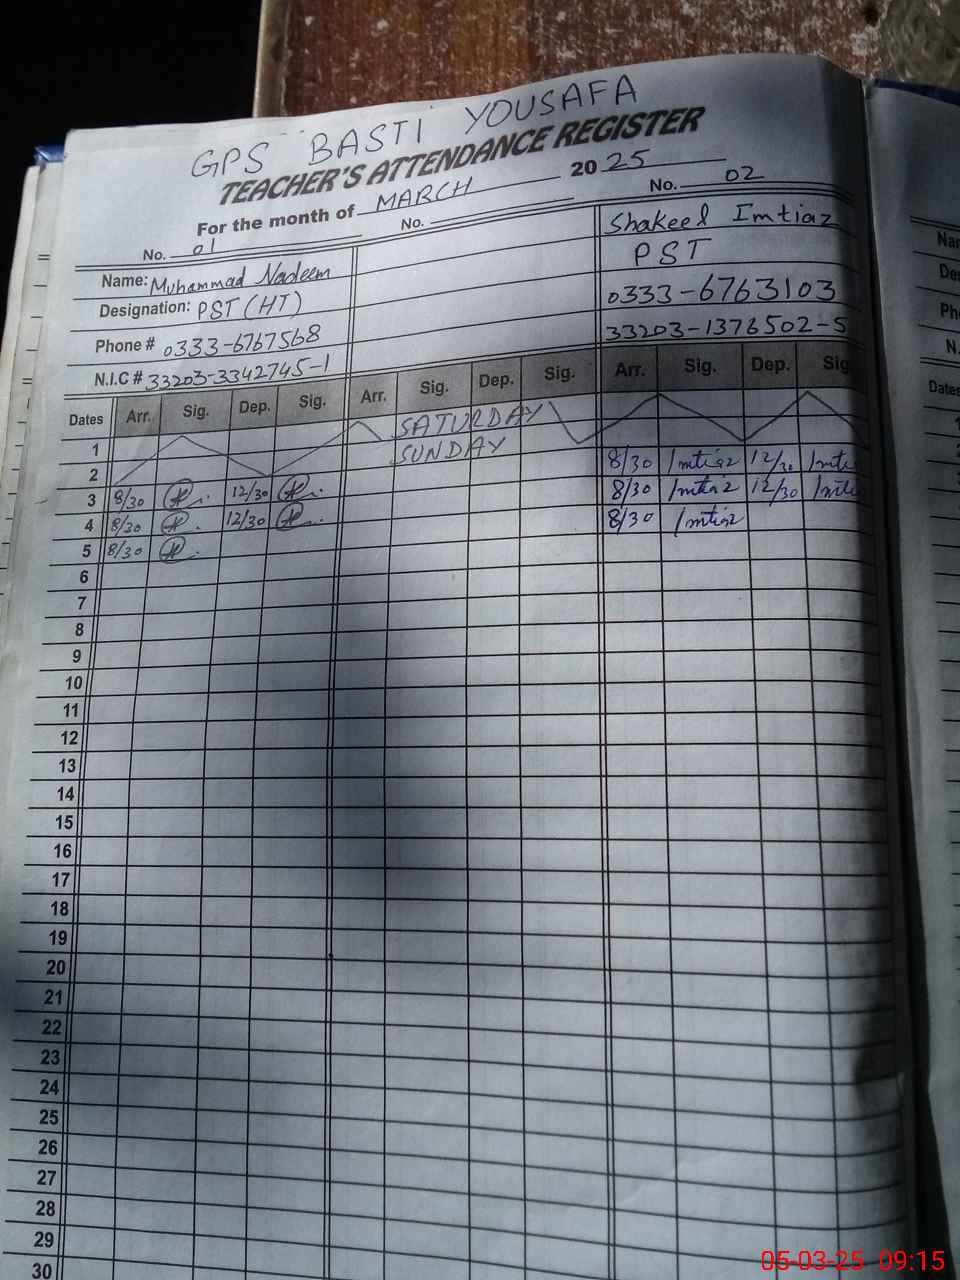 GPS BASTI YOUSAFA
TEACHER'S ATTENDANCE REGISTER
For the month of MARCH 2025
No. 01 No. No. 02
Name: Muhammad Nadeem Shakeel Imtiaz
Designation: PST (HT) PST
Phone # 0333-6767568 0333-6763103
N.I.C # 33203-3342745-1 33203-1376502-5
Dates Arr. Sig. Dep. Sig. Arr. Sig. Dep. Sig. Arr. Sig. Dep. Sig
1 SATURDAY
2 SUNDAY
3 8/30 12/30 8/30 Imtiaz 12/30 Imtia
4 8/30 12/30 8/30 Imtiaz 12/30 Imtia
5 8/30 8/30 Imtiaz
6
7
8
9
10
11
12
13
14
15
16
17
18
19
20
21
22
23
24
25
26
27
28
29
30
Nar
Des
Pho
N.
Dates
05-03-25 09:15